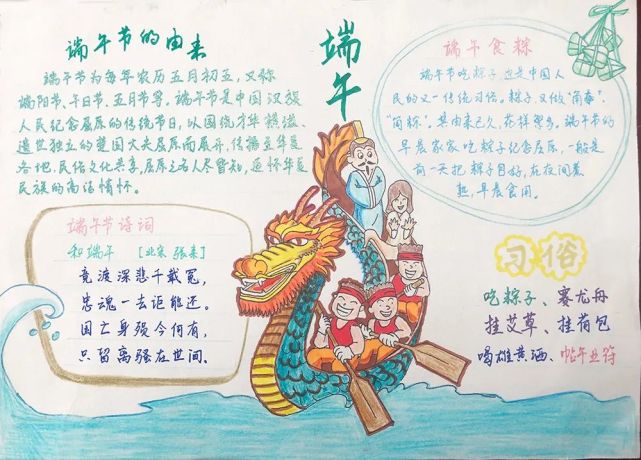 端午节的由来
端午节为每年农历五月初五,又称
端阳节、午日节、五月节等。端午节是中国汉族
人民纪念屈原的传统节日,以围绕才华横溢、
遗世独立的楚国大夫屈原而展开,传播至华夏
各地,民俗文化共享,屈原之名人尽皆知,追怀华夏
民族的高洁情怀。
端午
端午食粽
端午节吃粽子,这是中国人
民的又一传统习俗。粽子,又做"角黍"、
"筒粽"。其由来已久,花样繁多。端午节的
早晨家家吃粽子纪念屈原,一般是
前一天把粽子包好,在夜间煮
熟,早晨食用。
端午节诗词
和端午 [北宋 张耒]
竞渡深悲千载冤,
忠魂一去讵能还。
国亡身殒今何有,
只留离骚在世间。
习俗
吃粽子、赛龙舟
挂艾草、挂荷包
喝雄黄酒、帖午叶符